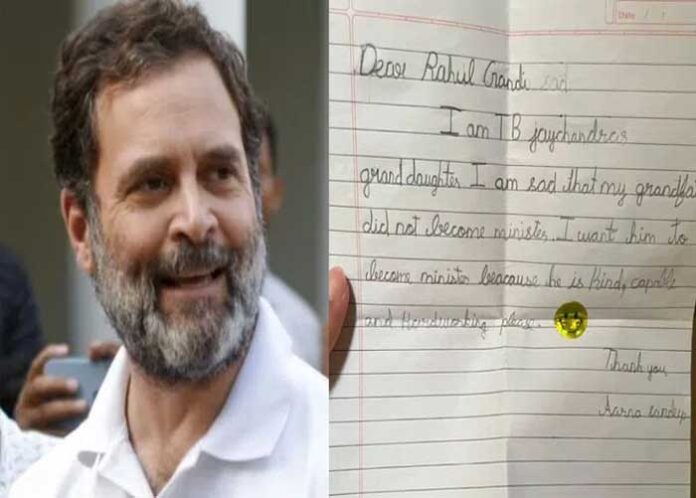 Date / /
Dear Rahul Gandi sad
I am TB jaychandras
granddaughter I am sad that my grandfat
did not become minister. I want him to
become minister beacause he is kind, capable
and Hardworking please
Thank you
Aarna Sandeep